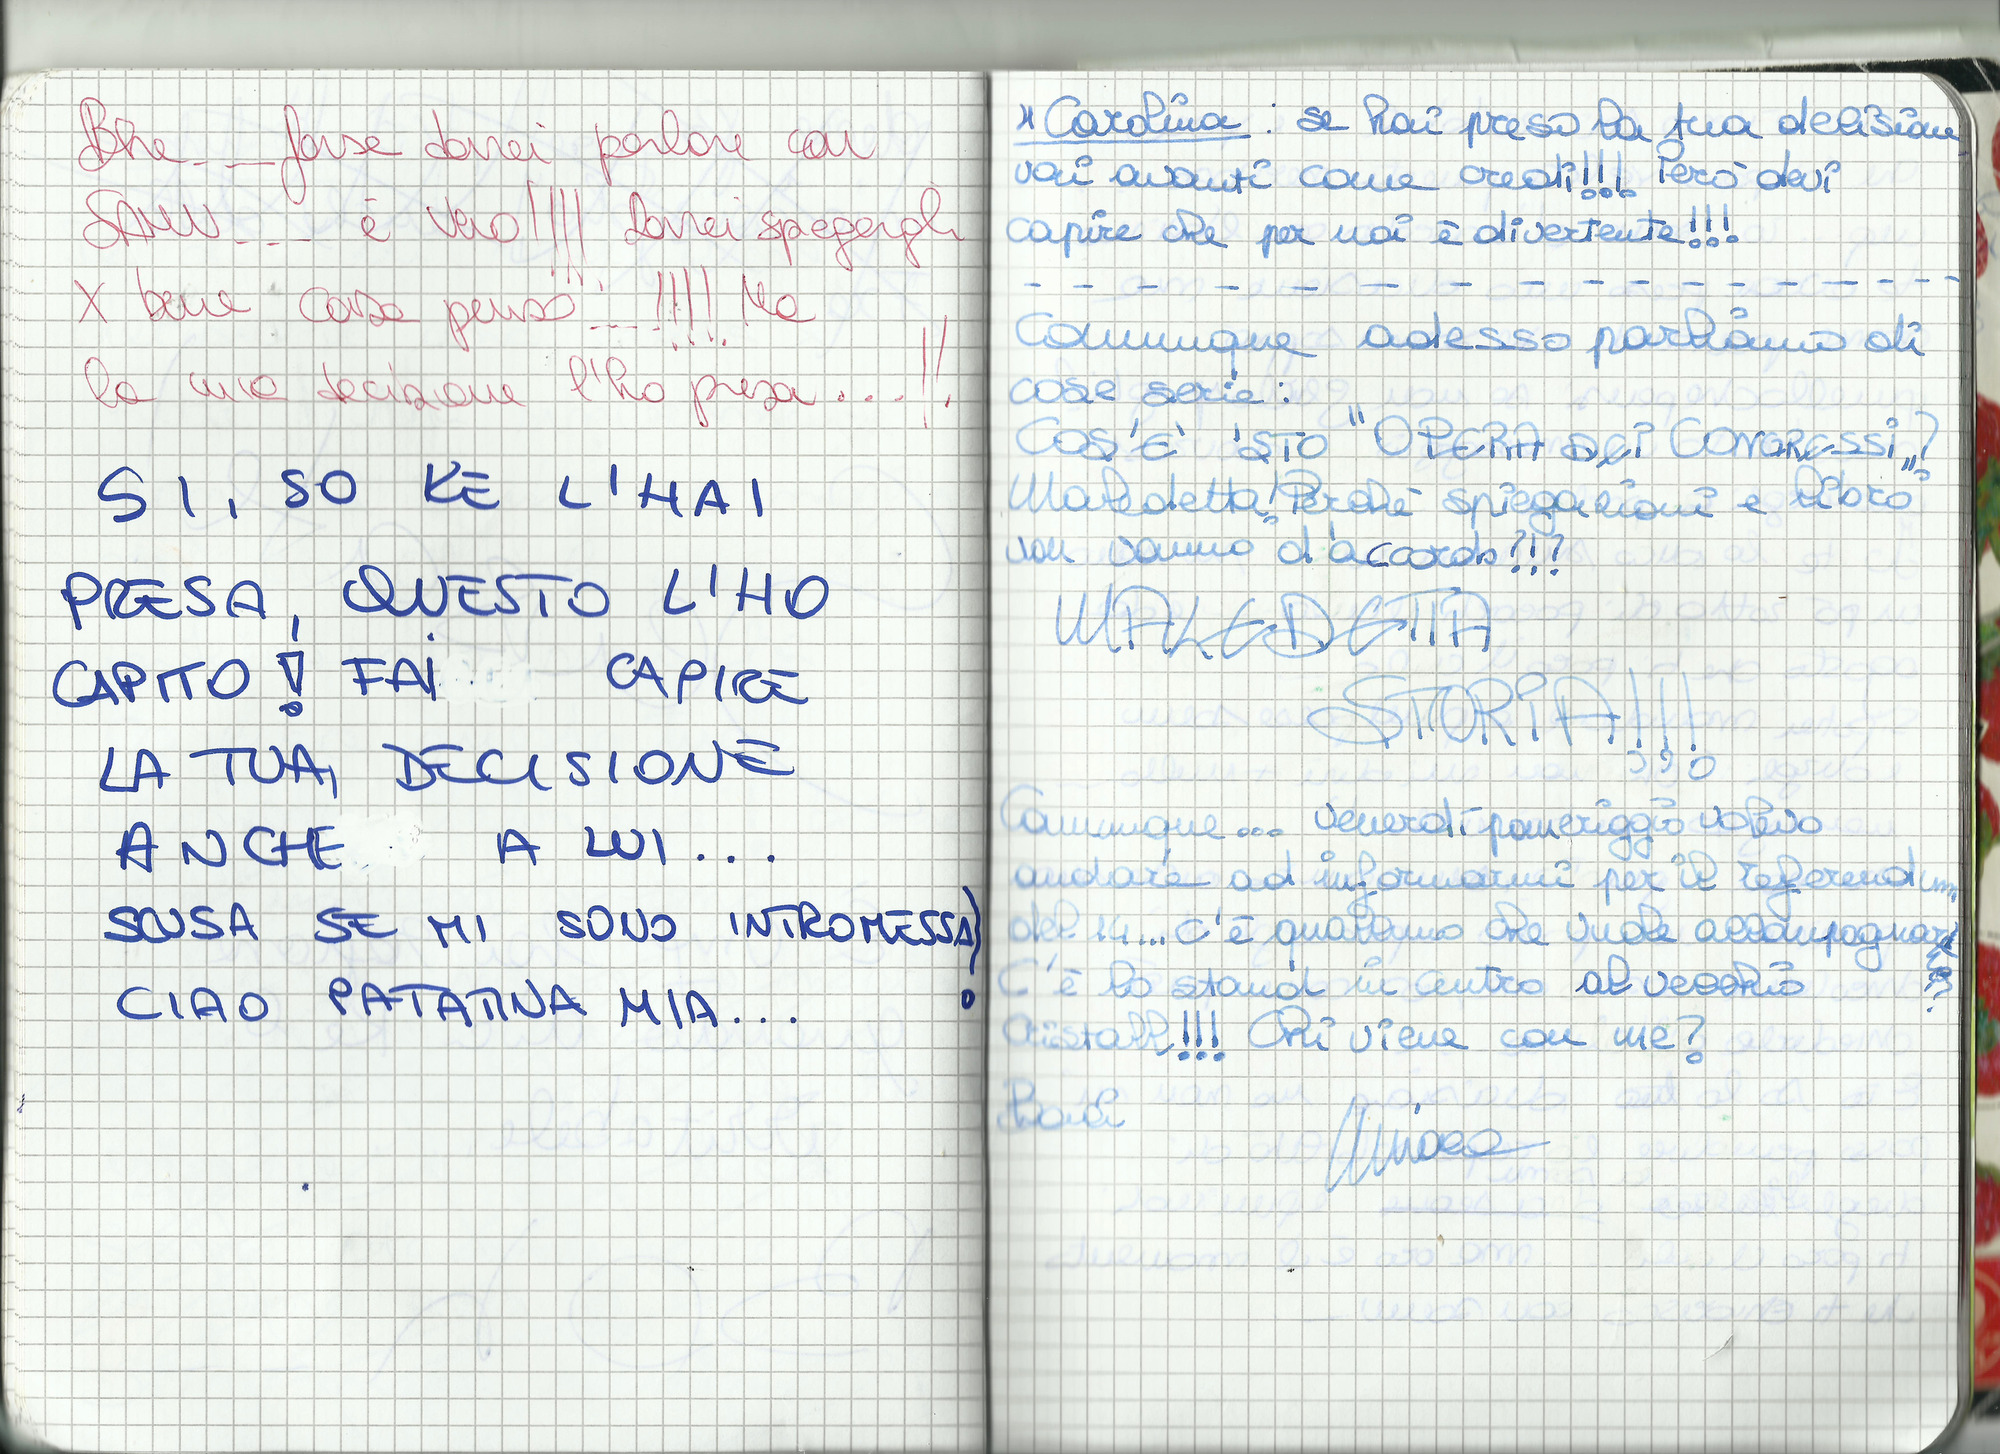 Bhe___forse dovrei parlare con
SAMU___ è vero!!!! Dovrei spegergli
X bene cosa penso...!!!! Ma
la mia decisione l'ho presa....!!
SI, SO KE L'HAI
PRESA, QUESTO L'HO
CAPITO! FAI CAPIRE
LA TUA, DECISIONE
ANCHE A LUI...
SCUSA SE MI SONO INTROMESSA!
CIAO PATATINA MIA...
* Carolina: se hai preso la tua decisione
vai avanti come credi!!! Però devi
capire che per noi è divertente!!!
Comunque adesso parliamo di
cose serie:
Cos'E' 'STO "OPERA DEI CONGRESSI"?
Maledetta! Perchè spiegazioni e libro
non vanno d'accordo?!!?
MALEDETTA
STORIA!!!
Comunque... venerdì pomeriggio volevo
andare ad informarmi per il referendum
del 14... c'è qualcuno che vuole accompagnarmi?
C'è lo stand in centro al vecchio
Cristall!!! Chi viene con me?